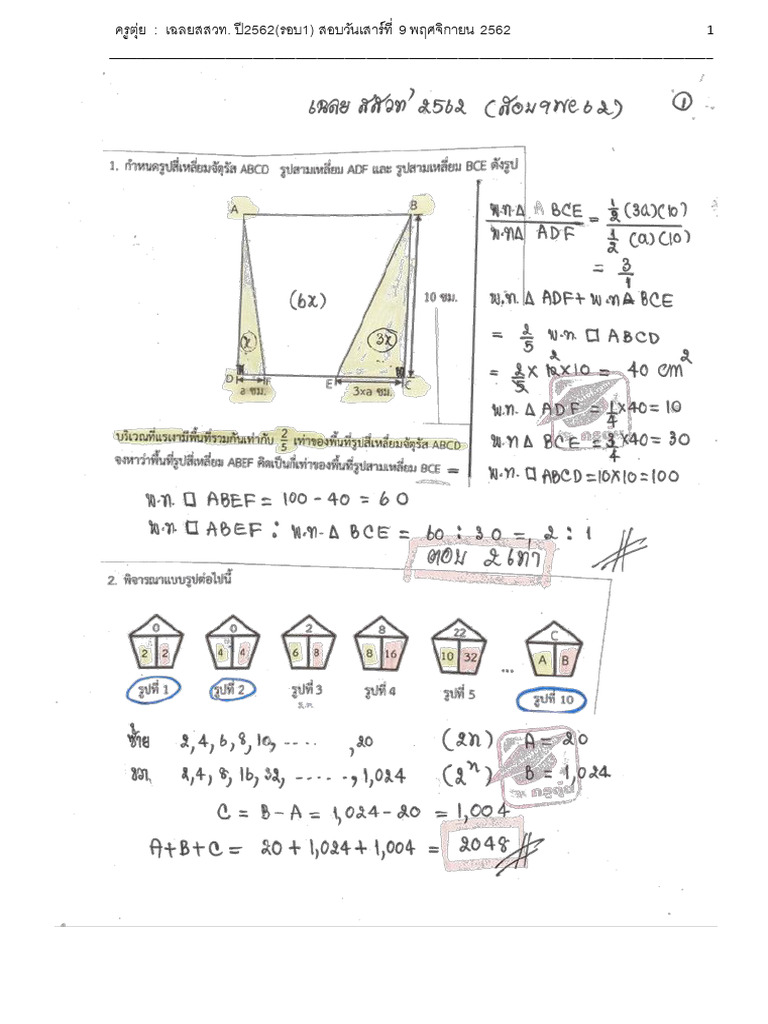 ครูตุ่ย : เฉลยสสวท. ปี2562(รอบ1) สอบวันเสาร์ที่ 9 พฤศจิกายน 2562 1
เฉลย สสวท' 2562 (สอบ 9 พย 62) ①
1. กำหนดรูปสี่เหลี่ยมจัตุรัส ABCD รูปสามเหลี่ยม ADF และ รูปสามเหลี่ยม BCE ดังรูป
A B
10 ซม.
(6x)
x 3x
D F E C
a ซม. 3xa ซม.
บริเวณที่แรเงามีพื้นที่รวมกันเท่ากับ 2/5 เท่าของพื้นที่รูปสี่เหลี่ยมจัตุรัส ABCD
จงหาว่าพื้นที่รูปสี่เหลี่ยม ABEF คิดเป็นกี่เท่าของพื้นที่รูปสามเหลี่ยม BCE =
พ.ท.Δ BCE / พ.ท.Δ ADF = 1/2 (3a)(10) / 1/2 (a)(10)
= 3/1
พ.ท. Δ ADF + พ.ท.Δ BCE
= 2/5 พ.ท. □ ABCD
= 2/5 × 10 × 10 = 40 cm²
พ.ท. Δ ADF = 1/4 × 40 = 10
พ.ท. Δ BCE = 3/4 × 40 = 30
พ.ท. □ ABCD = 10×10 = 100
พ.ท. □ ABEF = 100 - 40 = 60
พ.ท. □ ABEF : พ.ท. Δ BCE = 60 : 30 = 2 : 1
ตอบ 2 เท่า
2. พิจารณาแบบรูปต่อไปนี้
0 0 2 8 22 C
2 2 4 4 6 8 8 16 10 32 ... A B
รูปที่ 1 รูปที่ 2 รูปที่ 3 รูปที่ 4 รูปที่ 5 รูปที่ 10
ซ้าย 2, 4, 6, 8, 10, ....., 20 (2n) A = 20
ขวา 2, 4, 8, 16, 32, ....., 1,024 (2ⁿ) B = 1,024
C = B - A = 1,024 - 20 = 1,004
A+B+C = 20 + 1,024 + 1,004 = 2048